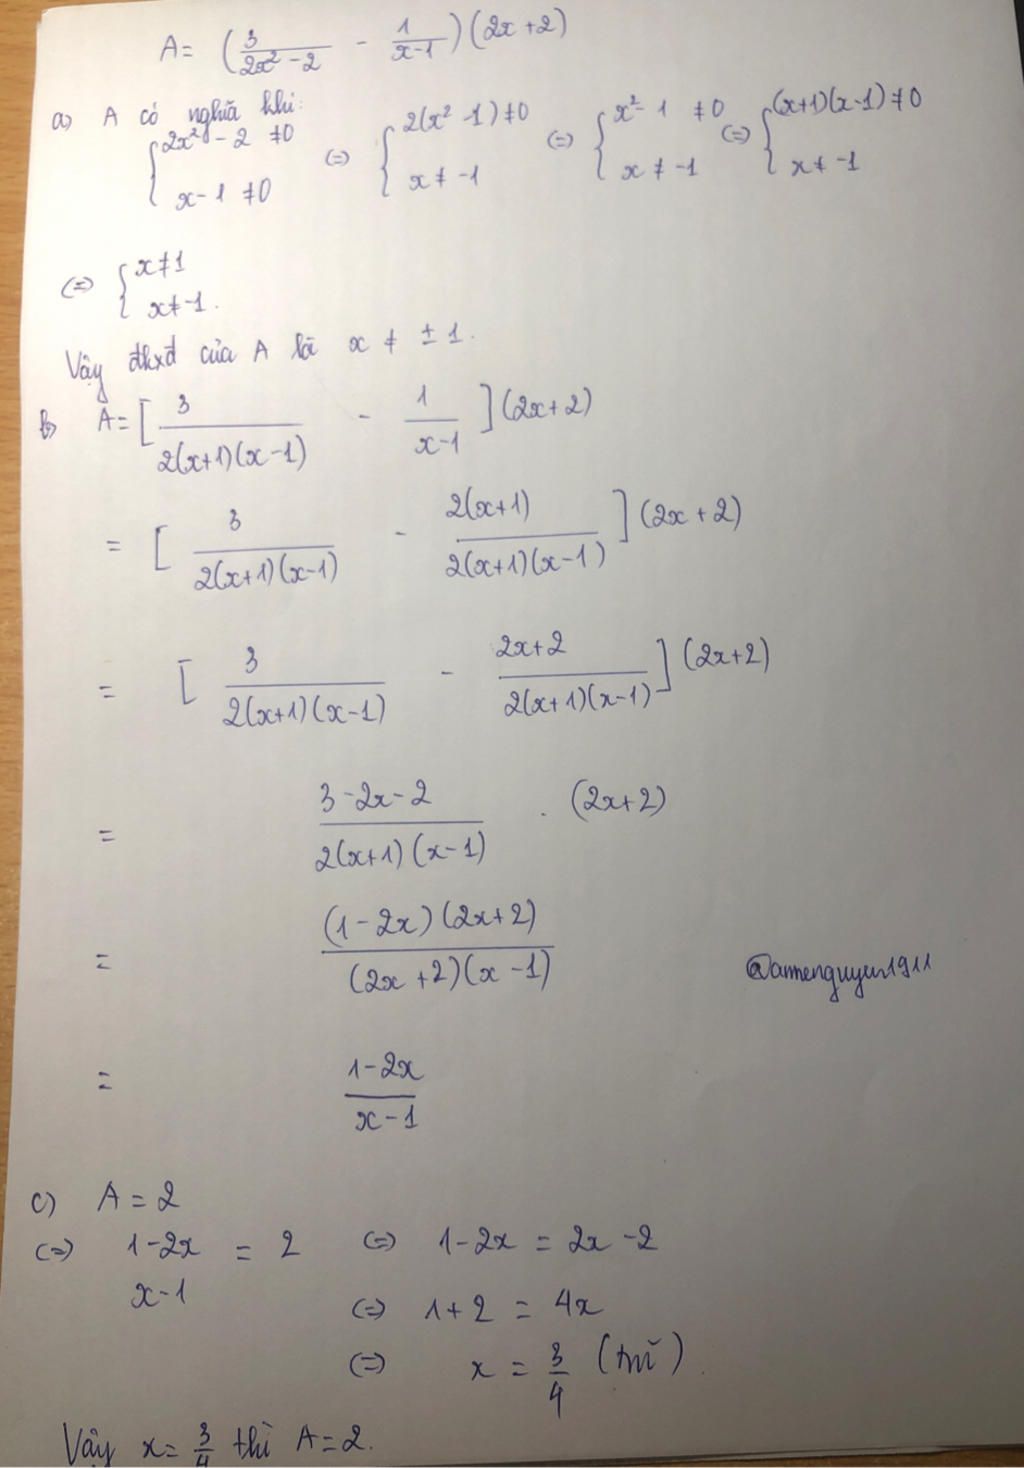 A= (3/(2x²-2) - 1/(x-1))(2x+2)
a) A có nghĩa khi:
{2x²-2 ≠0 (=) {2(x²-1)≠0 (=) {x²-1 ≠0 (=) {(x+1)(x-1)≠0
x-1 ≠0 x≠-1 x≠-1 x≠-1
(=) {x≠1
x≠-1.
Vậy đkxđ của A là x ≠ ±1.
b) A=[3/(2(x+1)(x-1)) - 1/(x-1)](2x+2)
= [3/(2(x+1)(x-1)) - 2(x+1)/(2(x+1)(x-1))](2x+2)
= [3/(2(x+1)(x-1)) - (2x+2)/(2(x+1)(x-1))](2x+2)
= (3-2x-2)/(2(x+1)(x-1)) . (2x+2)
= ((1-2x)(2x+2))/((2x+2)(x-1))
@amenguyen1911
= (1-2x)/(x-1)
c) A=2
(=) 1-2x = 2 (=) 1-2x = 2x-2
x-1
(=) 1+2 = 4x
(=) x = 3/4 (tm).
Vậy x= 3/4 thì A=2.